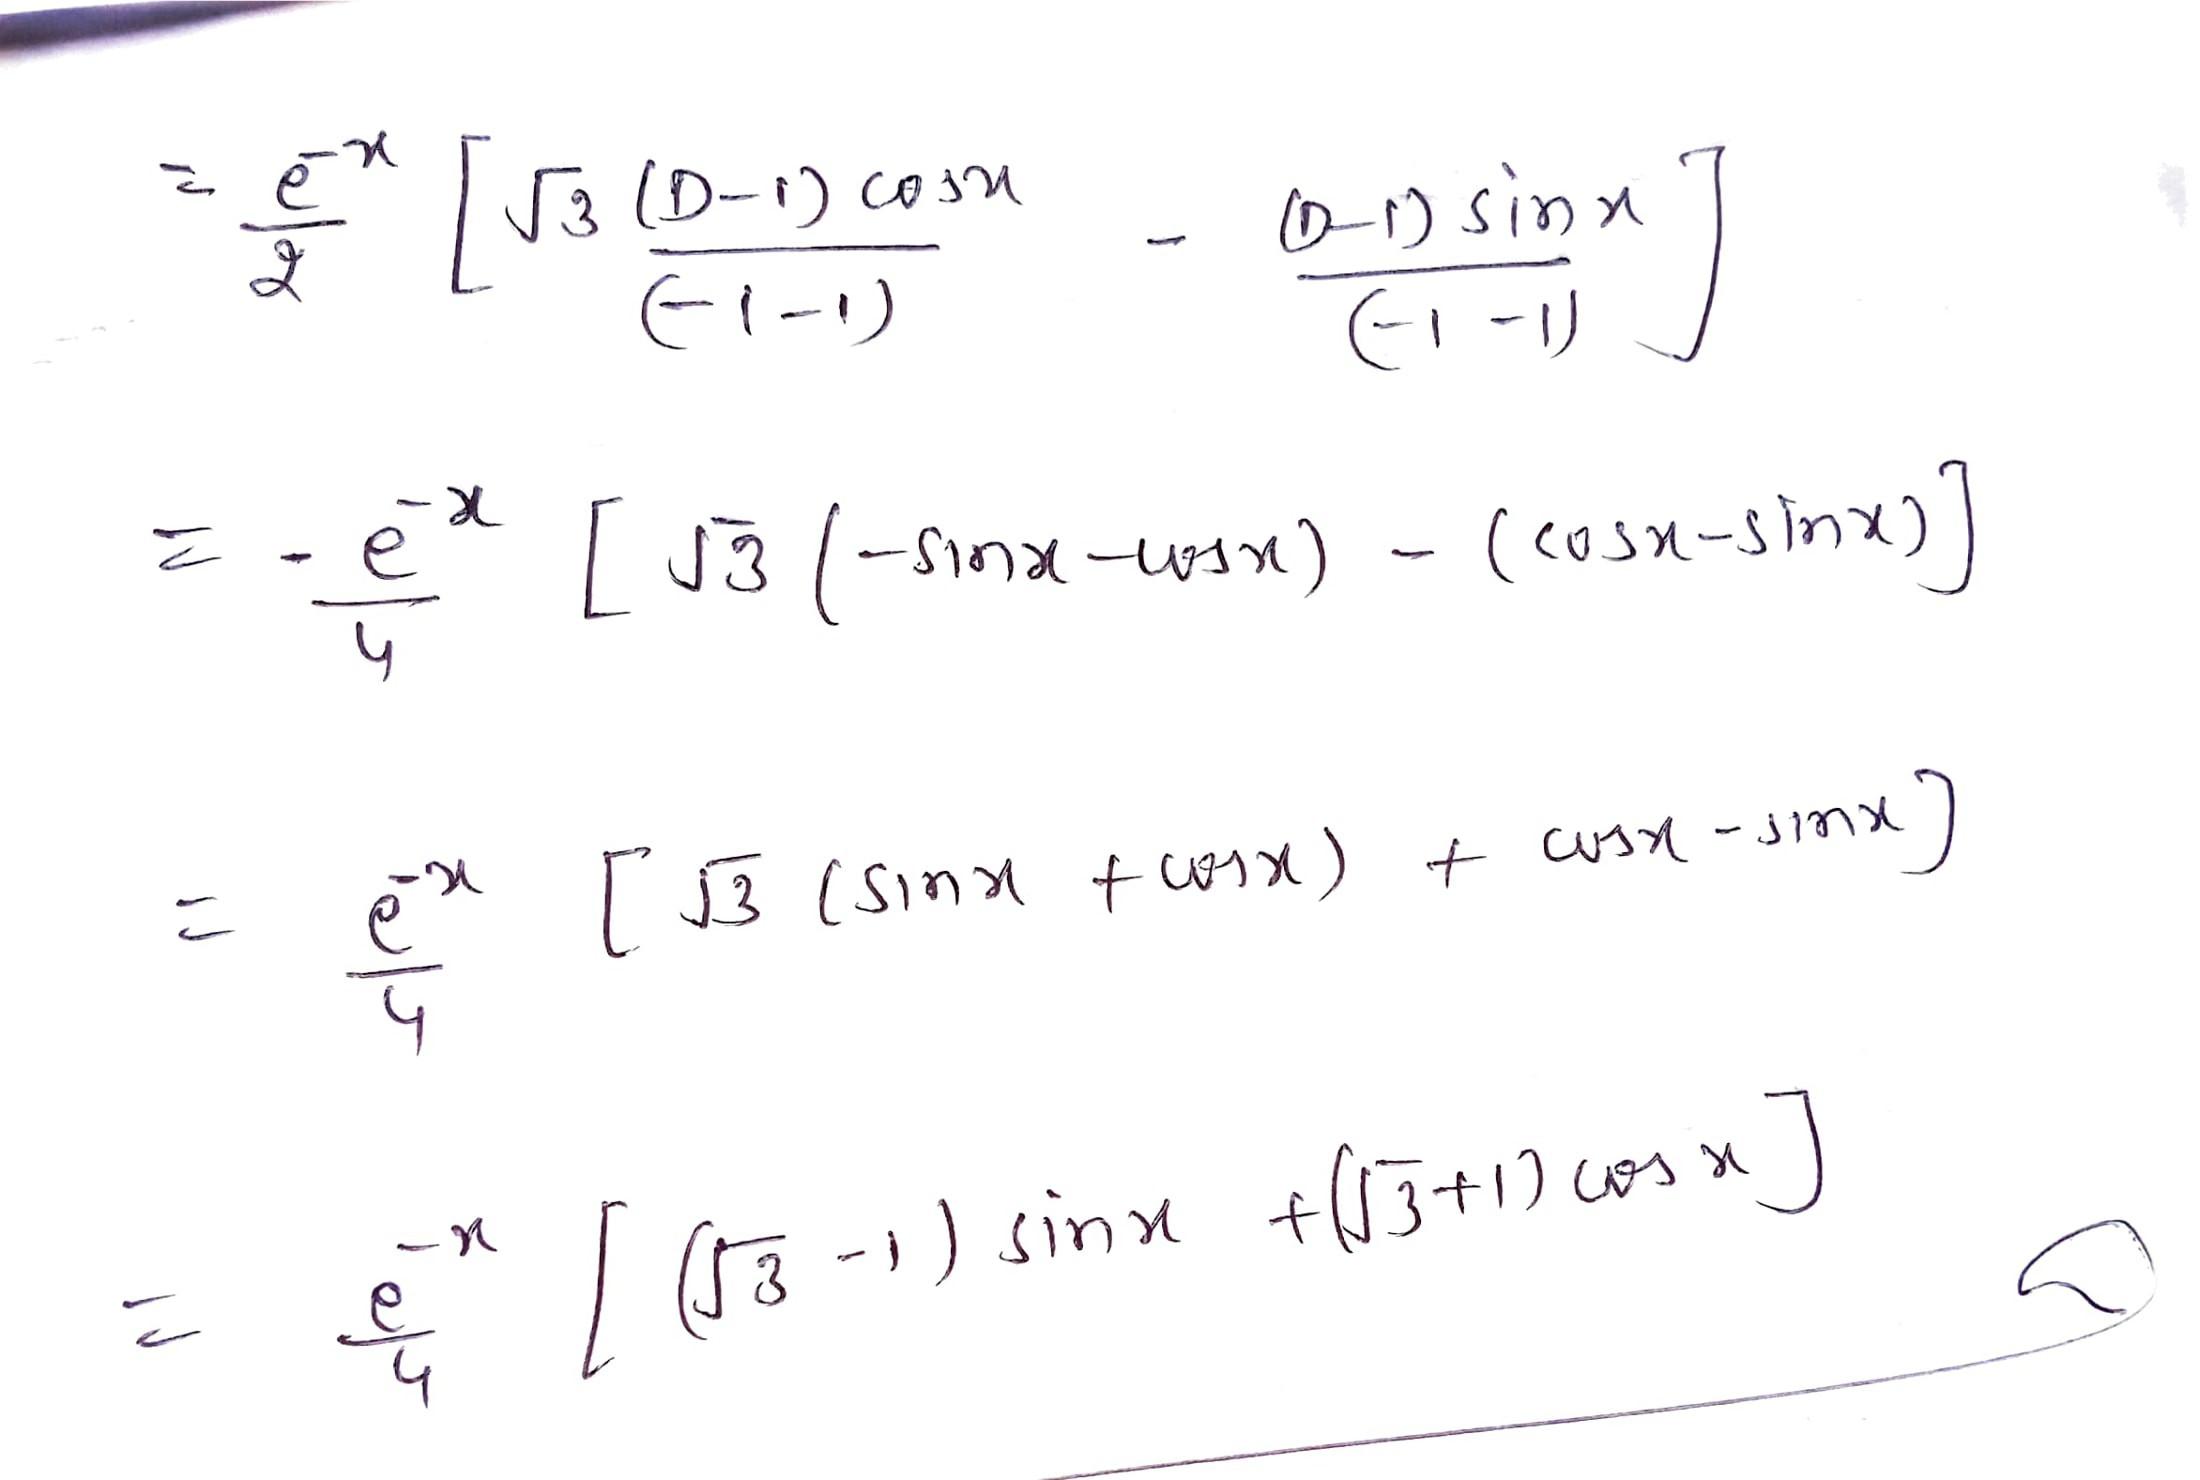 = e^{-x}/2 [ √3 (D-1) cosx / (-1-1) - (D-1) sinx / (-1-1) ]
= - e^{-x}/4 [ √3 (-sinx - cosx) - (cosx - sinx) ]
= e^{-x}/4 [ √3 (sinx + cosx) + cosx - sinx ]
= e^{-x}/4 [ (√3 - 1) sinx + (√3 + 1) cosx ]